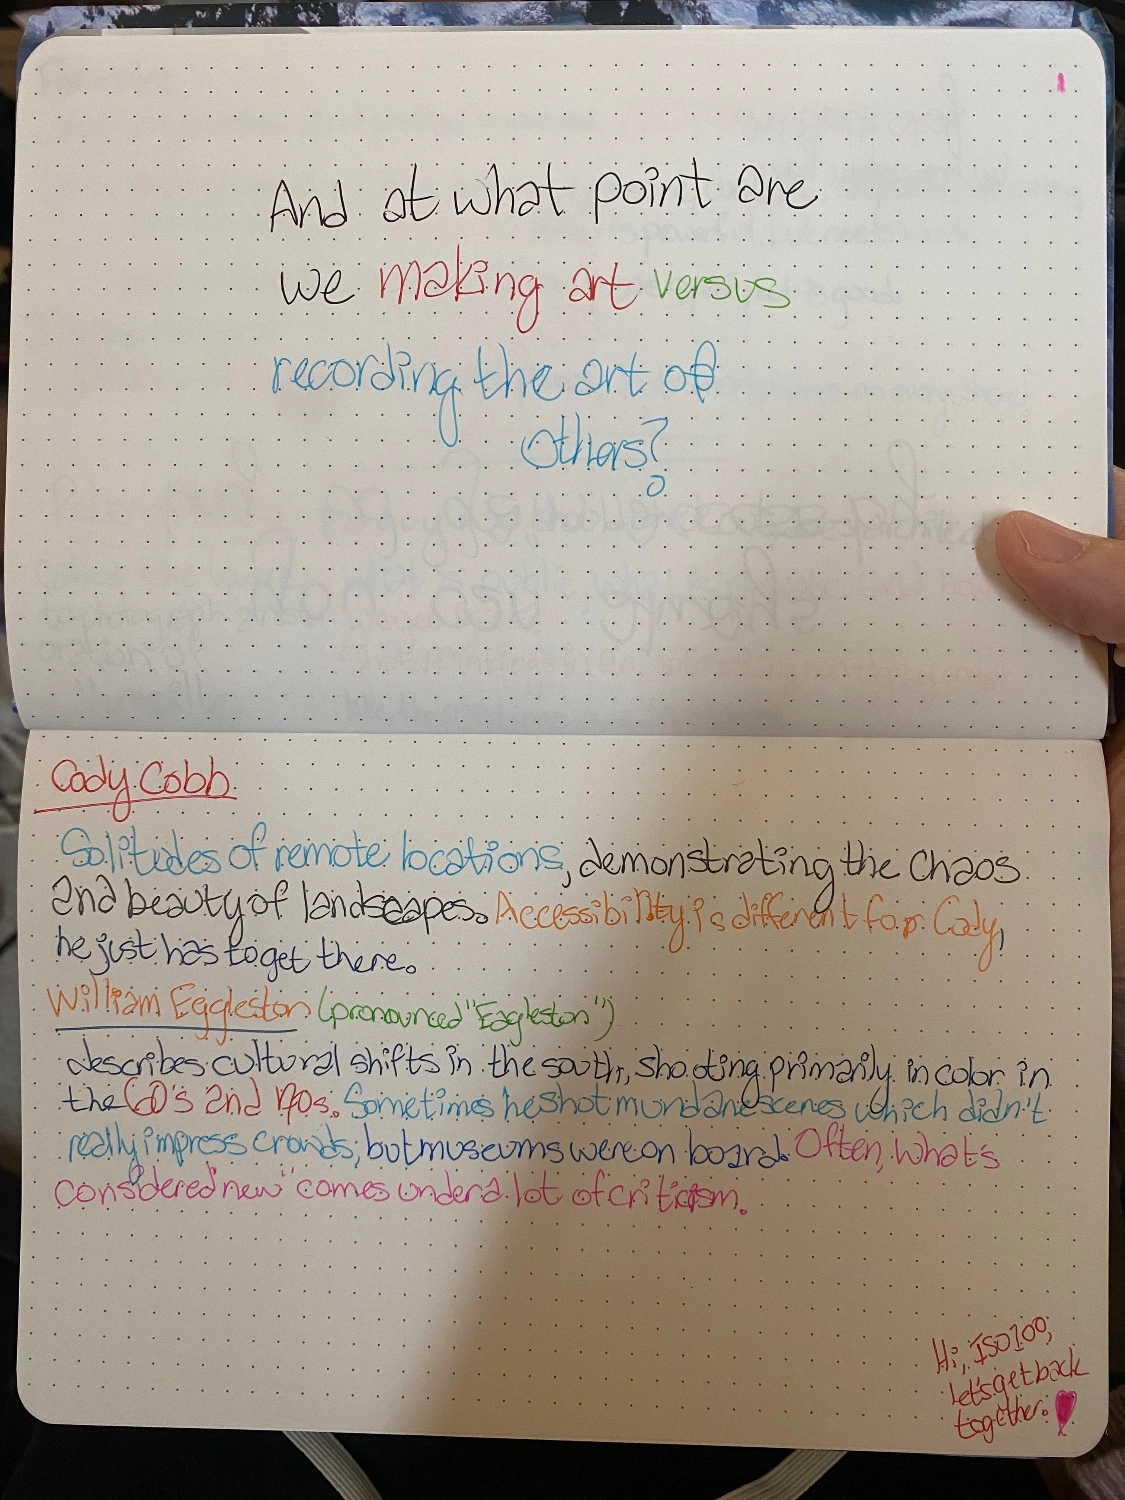 And at what point are
we making art versus
recording the art of
others?
Cody Cobb
Solitudes of remote locations, demonstrating the chaos
and beauty of landscapes. Accessibility is different for Cody,
he just has to get there.
William Eggleston (pronounced "Eagleston")
describes cultural shifts in the south, shooting primarily in color in
the 60's and 70s. Sometimes he shot mundane scenes which didn't
really impress crowds, but museums were on board. Often, what's
considered "new" comes under a lot of criticism.
Hi, ISO100,
Let's get back
together.